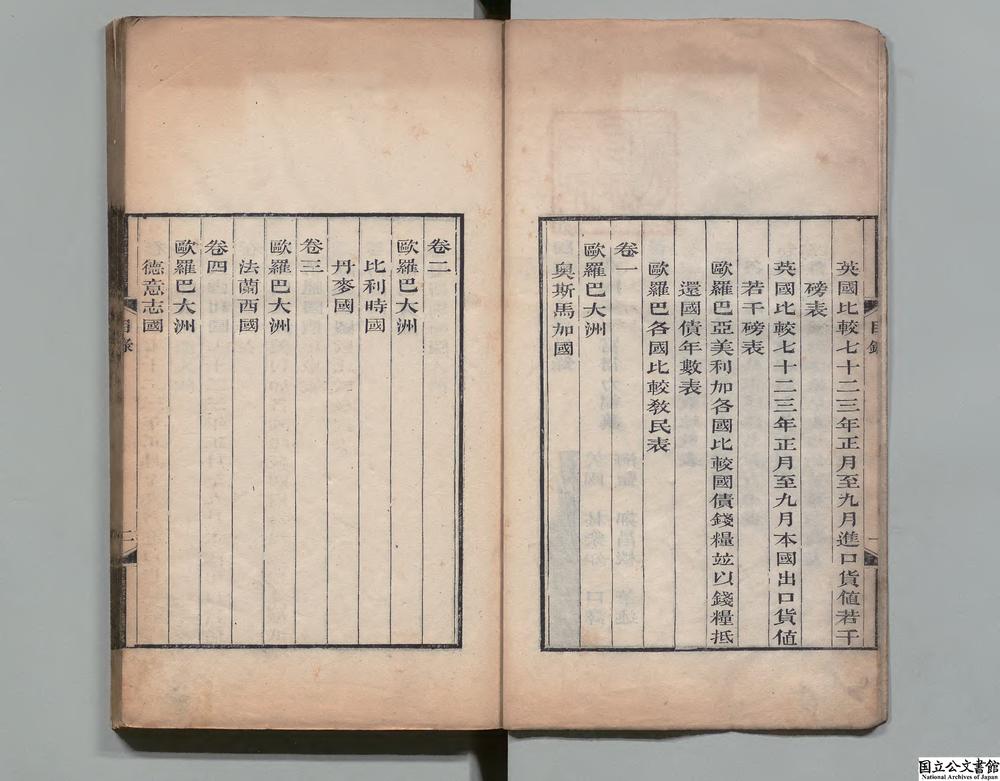 英國比較七十二三年正月至九月進口貨値若干
磅表
英國比較七十二三年正月至九月本國出口貨値
若干磅表
歐羅巴亞美利加各國比較國債錢糧並以錢糧抵
還國債年數表
歐羅巴各國比較敎民表
卷一
歐羅巴大洲
奥斯馬加國
卷二
歐羅巴大洲
比利時國
丹麥國
卷三
歐羅巴大洲
法蘭西國
卷四
歐羅巴大洲
德意志國
目錄
二
国立公文書館
National Archives of Japan